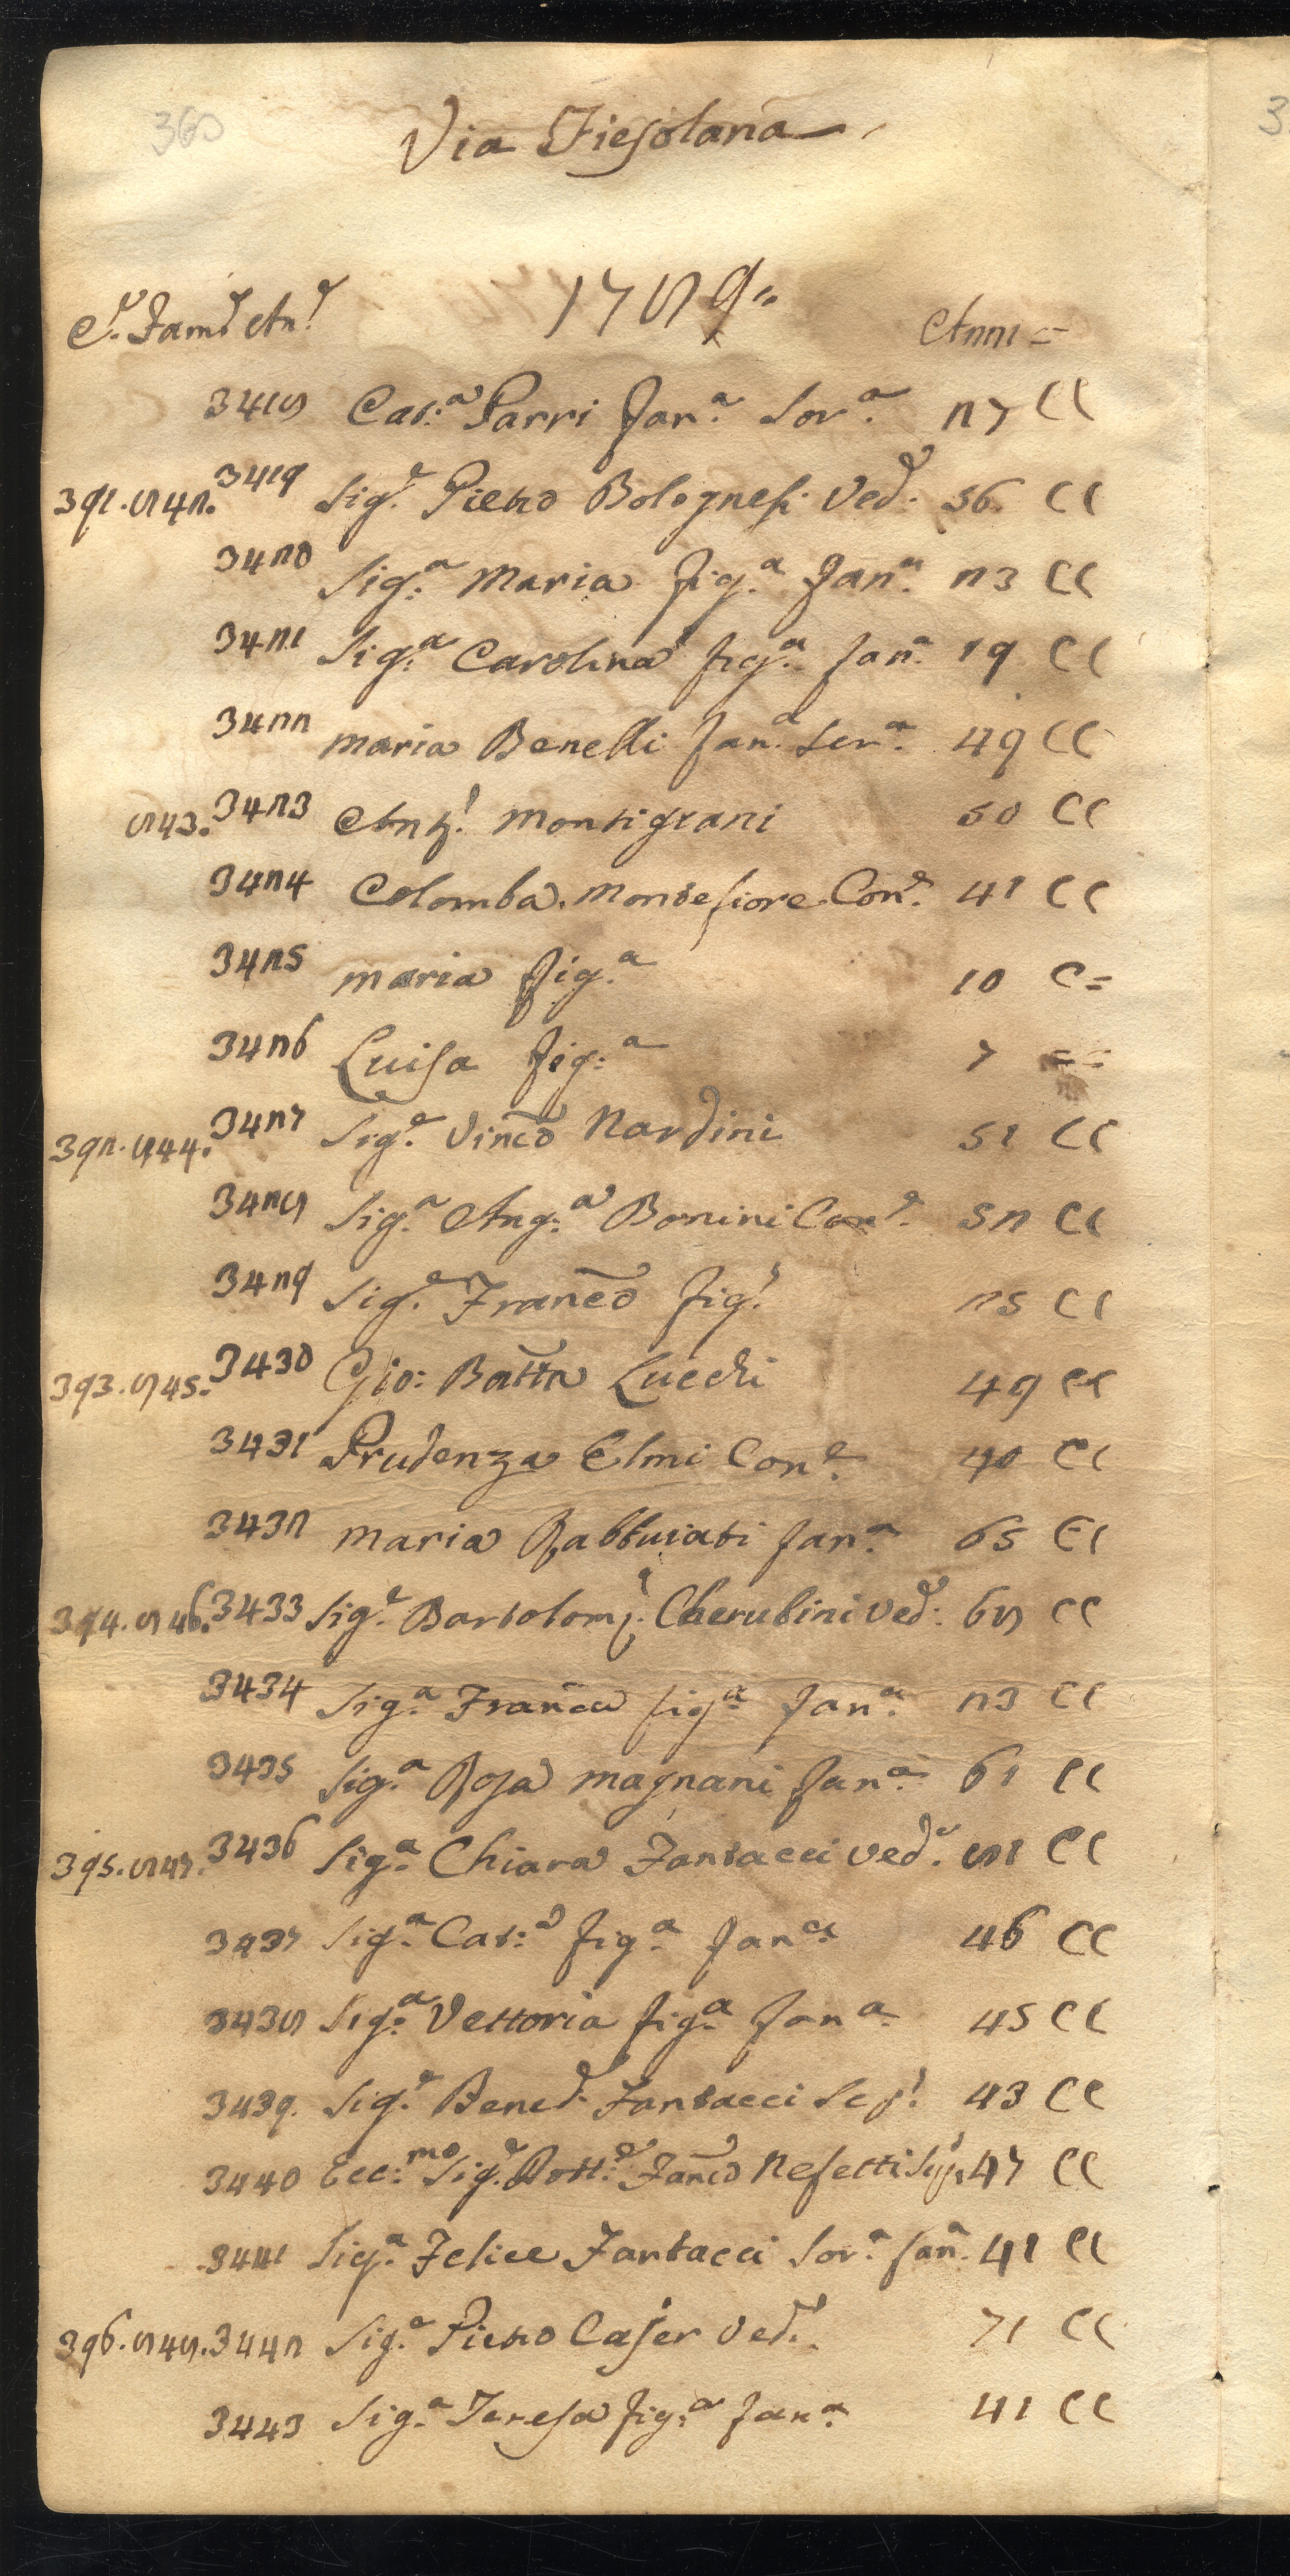 360
Via Fiesolana
1789
C.e Fam.e An.e Anni =
3418 Cat:a Parri Fan.a Sor.a 27 CC
391. 842. 3419 Sig.e Pietro Bolognesi Ved.o 56 CC
3420 Sig.a Maria fig.a Fan.a 23 CC
3421 Sig.a Carolina fig.a fan.a 19 CC
3422 Maria Benelli fan.a Ser.a 49 CC
843. 3423 Ant.o Montigiani 50 CC
3424 Colomba Montefiore Con.e 41 CC
3425 Maria fig.a 10 C=
3426 Luisa fig:a 7 ==
392. 844. 3427 Sig.e Vinc̃o Nardini 51 CC
3428 Sig.a Ang:a Bonini Con.e 52 CC
3429 Sig.e Franc̃o fig.o 25 CC
393. 845. 3430 Gio: Batta Lucchi 49 CC
3431 Prudenza Elmi Con.e 40 CC
3432 Maria Rabbuiati fan.a 65 CC
394. 846. 3433 Sig.e Bartolom.o Cherubini Ved.o 68 CC
3434 Sig.a Franc̃a fig.a fan.a 23 CC
3435 Sig.a Rosa Magnani fan.a 61 CC
395. 847. 3436 Sig.a Chiara Fantacci Ved.a 81 CC
3437 Sig.a Cat:a fig.a fan.a 46 CC
3438 Sig.a Vettoria fig.a fan.a 45 CC
3439. Sig.e Bened.o Fantacci Sc.o 43 CC
3440 Ecc:mo Sig.e Dott:e Fan̄co Nesetti 47 CC
3441 Sig.a Felice Fantacci Sor.a fan.a 41 CC
396. 848. 3442 Sig.e Pietro Caser Ved.o 71 CC
3443 Sig.a Teresa fig:a fan.a 41 CC